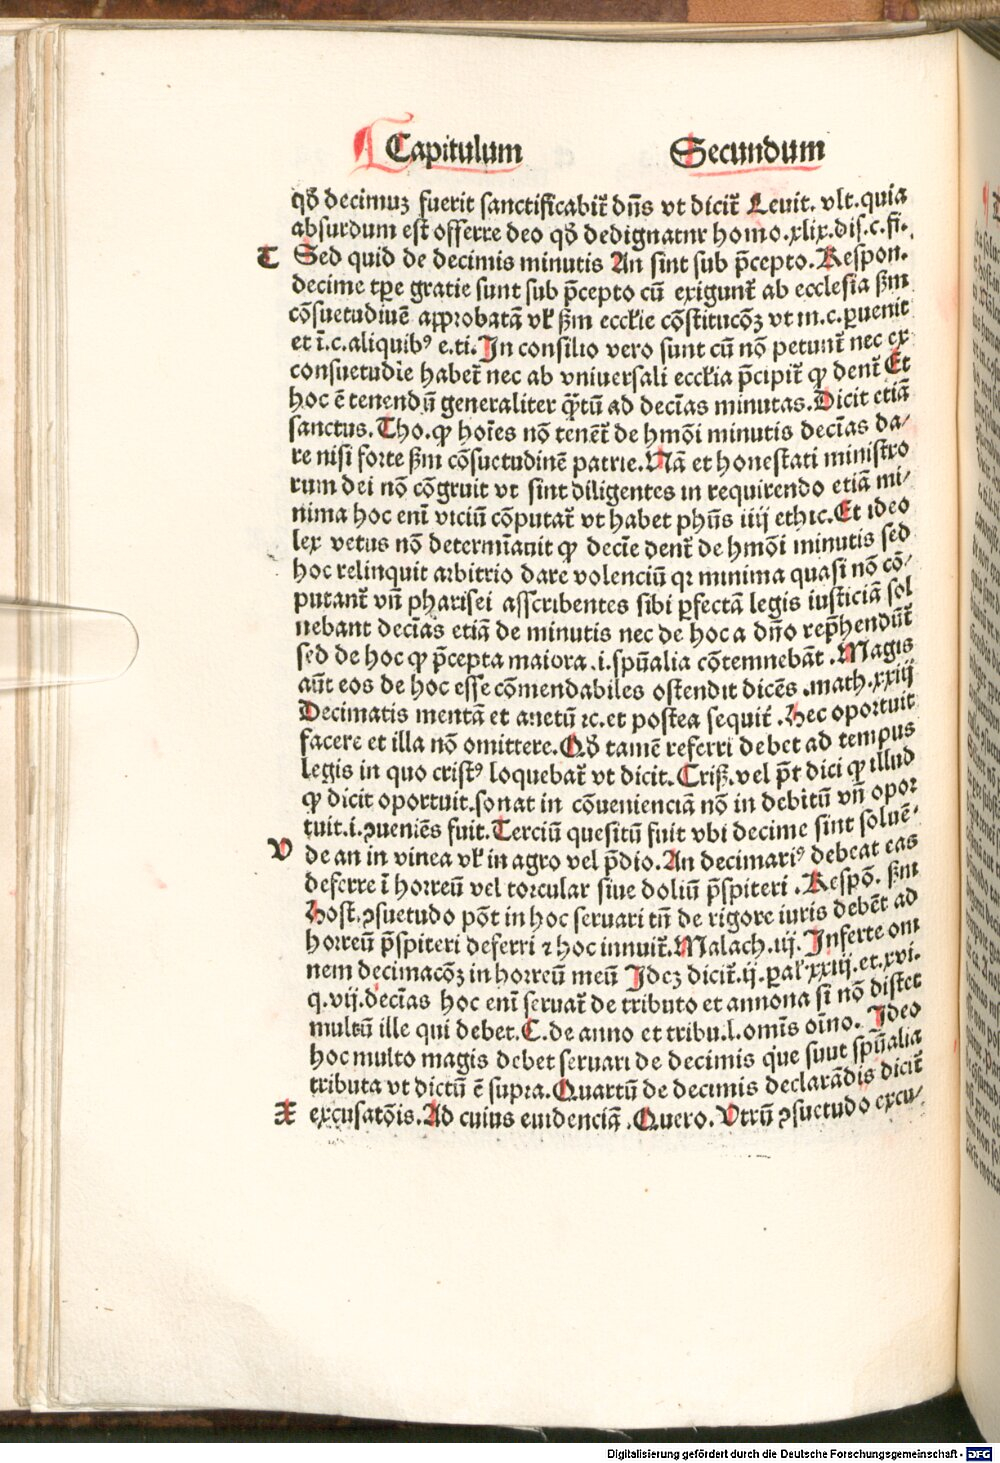 Capitulum Secundum
qď decimuȝ fuerit sanctificabiť dn̄s vt diciť Leuit. vlt. quia
absurdum est offerre deo qď dedignatnr homo.xlix.dis.c.fi.
T Sed quid de decimis minutis An sint sub p̄cepto. Respon.
decime tꝑe gratie sunt sub p̄cepto cū exigunť ab ecclesia ẜm
cōsuetudinē approbatā vľ ẜm eccľie cōstitucōȝ vt in.c.ꝑuenit
et ī.c.aliquibꝰ e.ti. In consilio vero sunt cū nō petunť nec ex
consuetudīe habeť nec ab vniuersali eccľia p̄cipiť ꝙ denť Et
hoc ē tenendū generaliter q̄tū ad decīas minutas. Dicit etiā
sanctus. Tho. ꝙ hoīes nō teneť de hmōi minutis decīas da⸗
re nisi forte ẜm cōsuetudinē patrie. Nā et honestati ministro
rum dei nō cōgruit vt sint diligentes in requirendo etiā mi⸗
nima hoc enī viciū cōputať vt habet phūs iiij ethic. Et ideo
lex vetus nō determīauit ꝙ decīe denť de hmōi minutis sed
hoc relinquit arbitrio dare volenciū qꝛ minima quasi nō cō⸗
putanť vn̄ pharisei asscribentes sibi ꝑfectā legis iusticiā sol
nebant decīas etiā de minutis nec de hoc a dn̄o rep̄hendūť
sed de hoc ꝙ p̄cepta maiora .i. spūalia cōtemnebāt . Magis
aūt eos de hoc esse cōmendabiles ostendit dicēs .math.xxiij
Decimatis mentā et anetū ꝛc. et postea sequiť . Hec oportuit
facere et illa nō omittere. Qď tamē referri debet ad tempus
legis in quo cristꝰ loquebať vt dicit. Criß. vel p̄t dici ꝙ illud
ꝙ dicit oportuit. sonat in cōueniencíā nō in debitū vn̄ opor
tuit .i. ꝯueniēs fuit. Terciū quesitū fuit vbi decime sint soluē⸗
V de an in vinea vľ in agro vel p̄dio. An decimariꝰ debeat eas
deferre ī horreū vel torcular siue doliū p̄spiteri . Respō. ẜm
Host. ꝯsuetudo pōt in hoc seruari tn̄ de rigore iuris debēt ad
horreū p̄spiteri deferri ⁊ hoc innuiť. Malach.iij. Inferte om
nem decimacōȝ in horreū meū Ideȝ diciť.ij.ꝑaľ.xxiij.et.xvi.
q.vij. decīas hoc enī seruať de tributo et annona si nō distet
multū ille qui debet. C. de anno et tribu.l.omīs oīno. Ideo
hoc multo magis debet seruari de decimis que suut spūalia
tributa vt dictū ē supra. Quartū de decimis declarādis diciť
X excusatōis. Ad cuius euidenciā . Quero. Vtrū ꝯsuetudo excu⸗
Digitalisierung gefördert durch die Deutsche Forschungsgemeinschaft - DFG